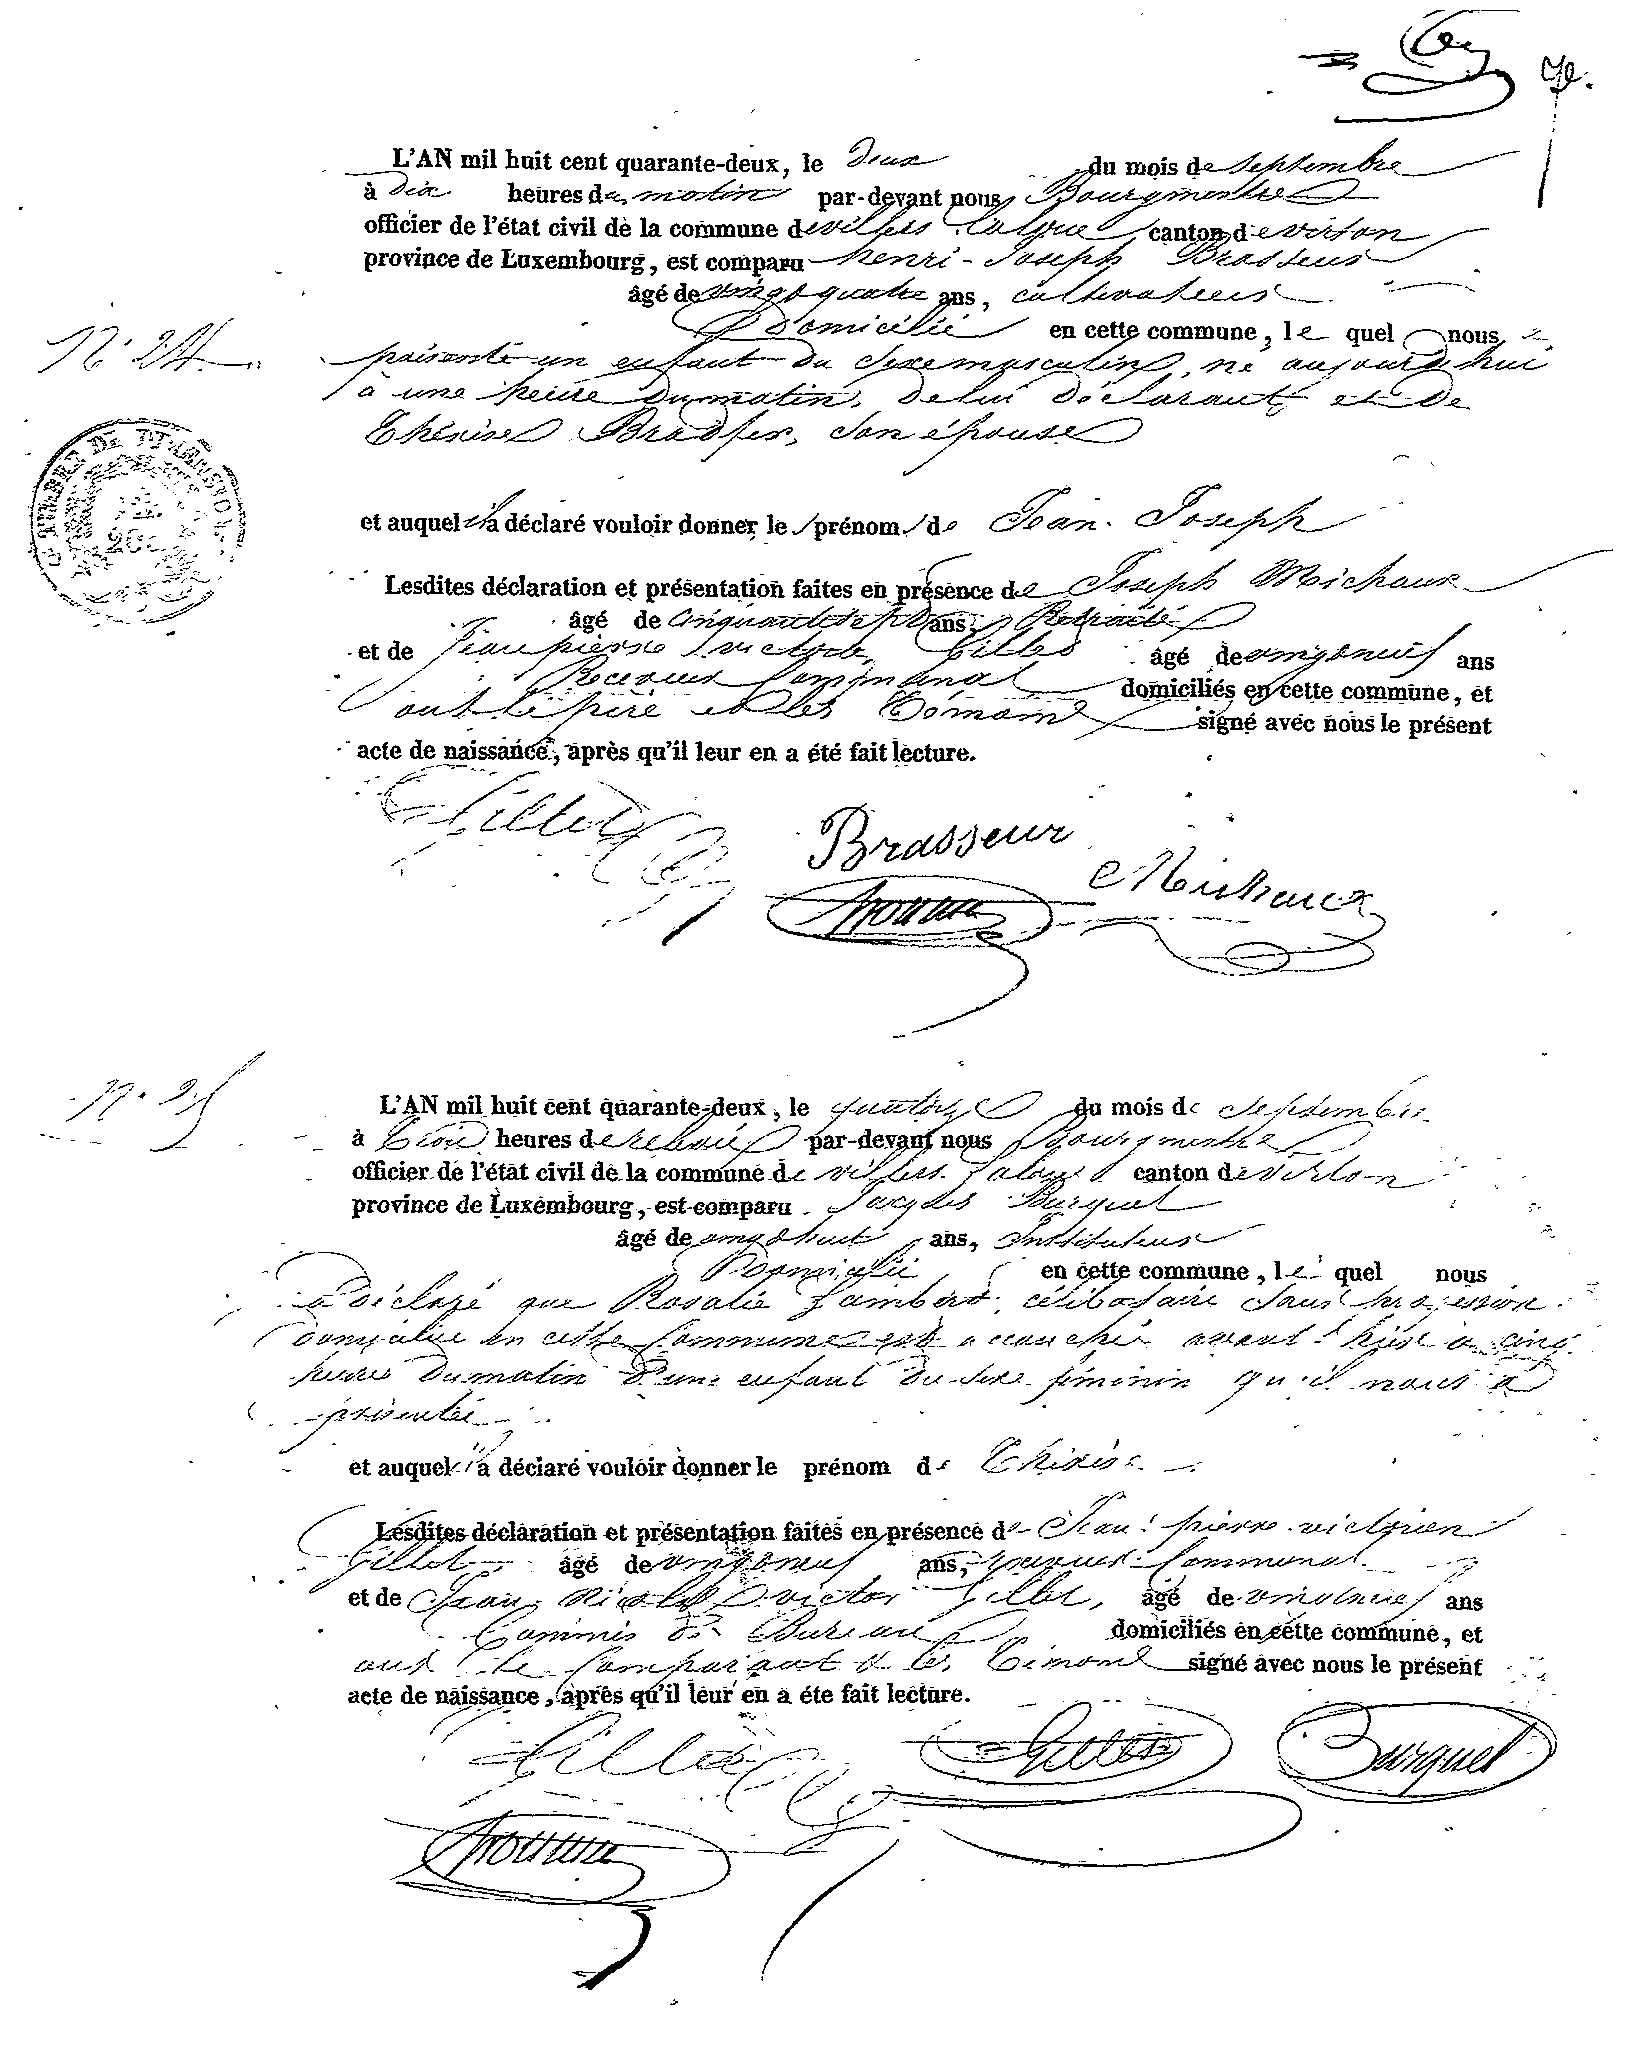 L'AN mil huit cent quarante-deux, le deux du mois de septembre
à dix heures du matin par-devant nous Bourgmestre
officier de l'état civil de la commune de villers laloue canton de virton
province de Luxembourg, est comparu henri-Joseph Brasseur
âgé de vingt quatre ans, cultivateur
Domicilié en cette commune, le quel nous a
N° 24
présenté un enfant du sexe masculin, né aujourd'hui
à une heure du matin, de lui déclarant, et de
Thérèse Bradfer, son épouse
TIMBRE DE TRANSITION
et auquel il a déclaré vouloir donner le prénom de Jean-Joseph
Lesdites déclaration et présentation faites en présence de Joseph Michaux
âgé de cinquante sept ans, Retraité
et de Jean pierre victorien Gillet âgé de vingt neuf ans
Receveur Communal domiciliés en cette commune, et
ont le père et les Témoins signé avec nous le présent
acte de naissance, après qu'il leur en a été fait lecture.
Gillet
Brasseur
Michaux
N° 25
L'AN mil huit cent quarante-deux, le quatorze du mois de septembre
à trois heures de relevée par-devant nous Bourgmestre
officier de l'état civil de la commune de villers laloue canton de virton
province de Luxembourg, est comparu Jacques Burquel
âgé de vingt huit ans, Instituteur
Domicilié en cette commune, le quel nous
a déclaré que Rosalie Lambert, célibataire sans profession
domiciliée en cette Commune est accouchée avant hier à cinq
heures du matin d'une enfant du sexe féminin qu'il nous a
présentée
et auquel il a déclaré vouloir donner le prénom de Thérèse
Lesdites déclaration et présentation faites en présence de Jean pierre victorien
Gillet âgé de vingt neuf ans, receveur Communal
et de Jean Nicolas victor Gillet, âgé de vingt neuf ans
Commis de Bureau domiciliés en cette commune, et
ont le Comparant et les Témoins signé avec nous le présent
acte de naissance, après qu'il leur en a éte fait lecture.
Gillet
Gillet
Burquel